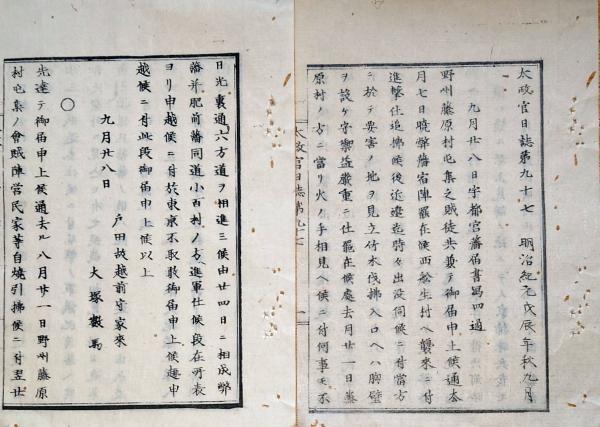 太政官日誌第九十七 明治紀元戊辰年秋九月
九月廿八日宇都宮藩届書写四通
野州藤原村屯集之賊徒共兼テ御届申上候通本
月七日暁弊藩宿陣罷在候西船生村ヘ襲来ニ付
進撃仕追拂候後近邊迄時々出没伺候ニ付當方
ニ於テ要害ノ地ヲ見立竹木伐拂入口ヘハ胸壁
ヲ設ケ守禦益厳重ニ仕罷在候處去月廿一日藤
原村ノ方ニ當リ火ノ手相見ヘ候ニ付何事モ不
太政官日誌第九十七
日光裏通六方道ヲ相進三候由廿四日ニ相成弊
藩并肥前藩同道小百村ノ方進軍仕候段在所表
ヨリ申越候ニ付於東京不取敢御届申上候趣申
越候ニ付此段御届申上候以上
九月廿八日
戸田故越前守家来
大塚數馬
○
先達テ御届申上候通去ル八月廿一日野州藤原
村屯集ノ會賊陣営民家等自焼引拂候ニ付翌廿